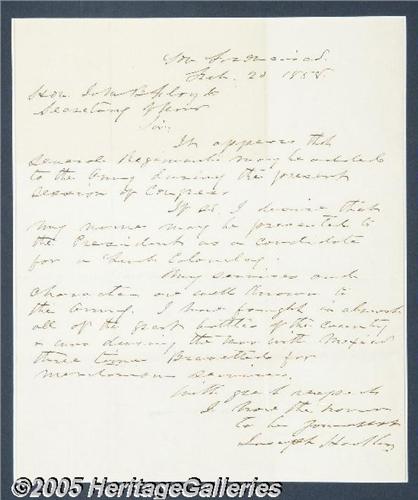 San Francisco Cal.
Feb. 20 1858
Hon. John B Floyd
Secretary of War
Sir,
It appears that
several Regiments may be added
to the Army during the present
session of Congress
If so, I desire that
my name may be presented to
the President as a candidate
for a Lieut Colonelcy.
My services and
character are well known to
the Army. I have fought in almost
all of the great battles of the Country
during the war with Mexico
three times Brevetted for
meritorious services.
With great respect
I have the honor
to be
Joseph Hooker
©2005 HeritageGalleries